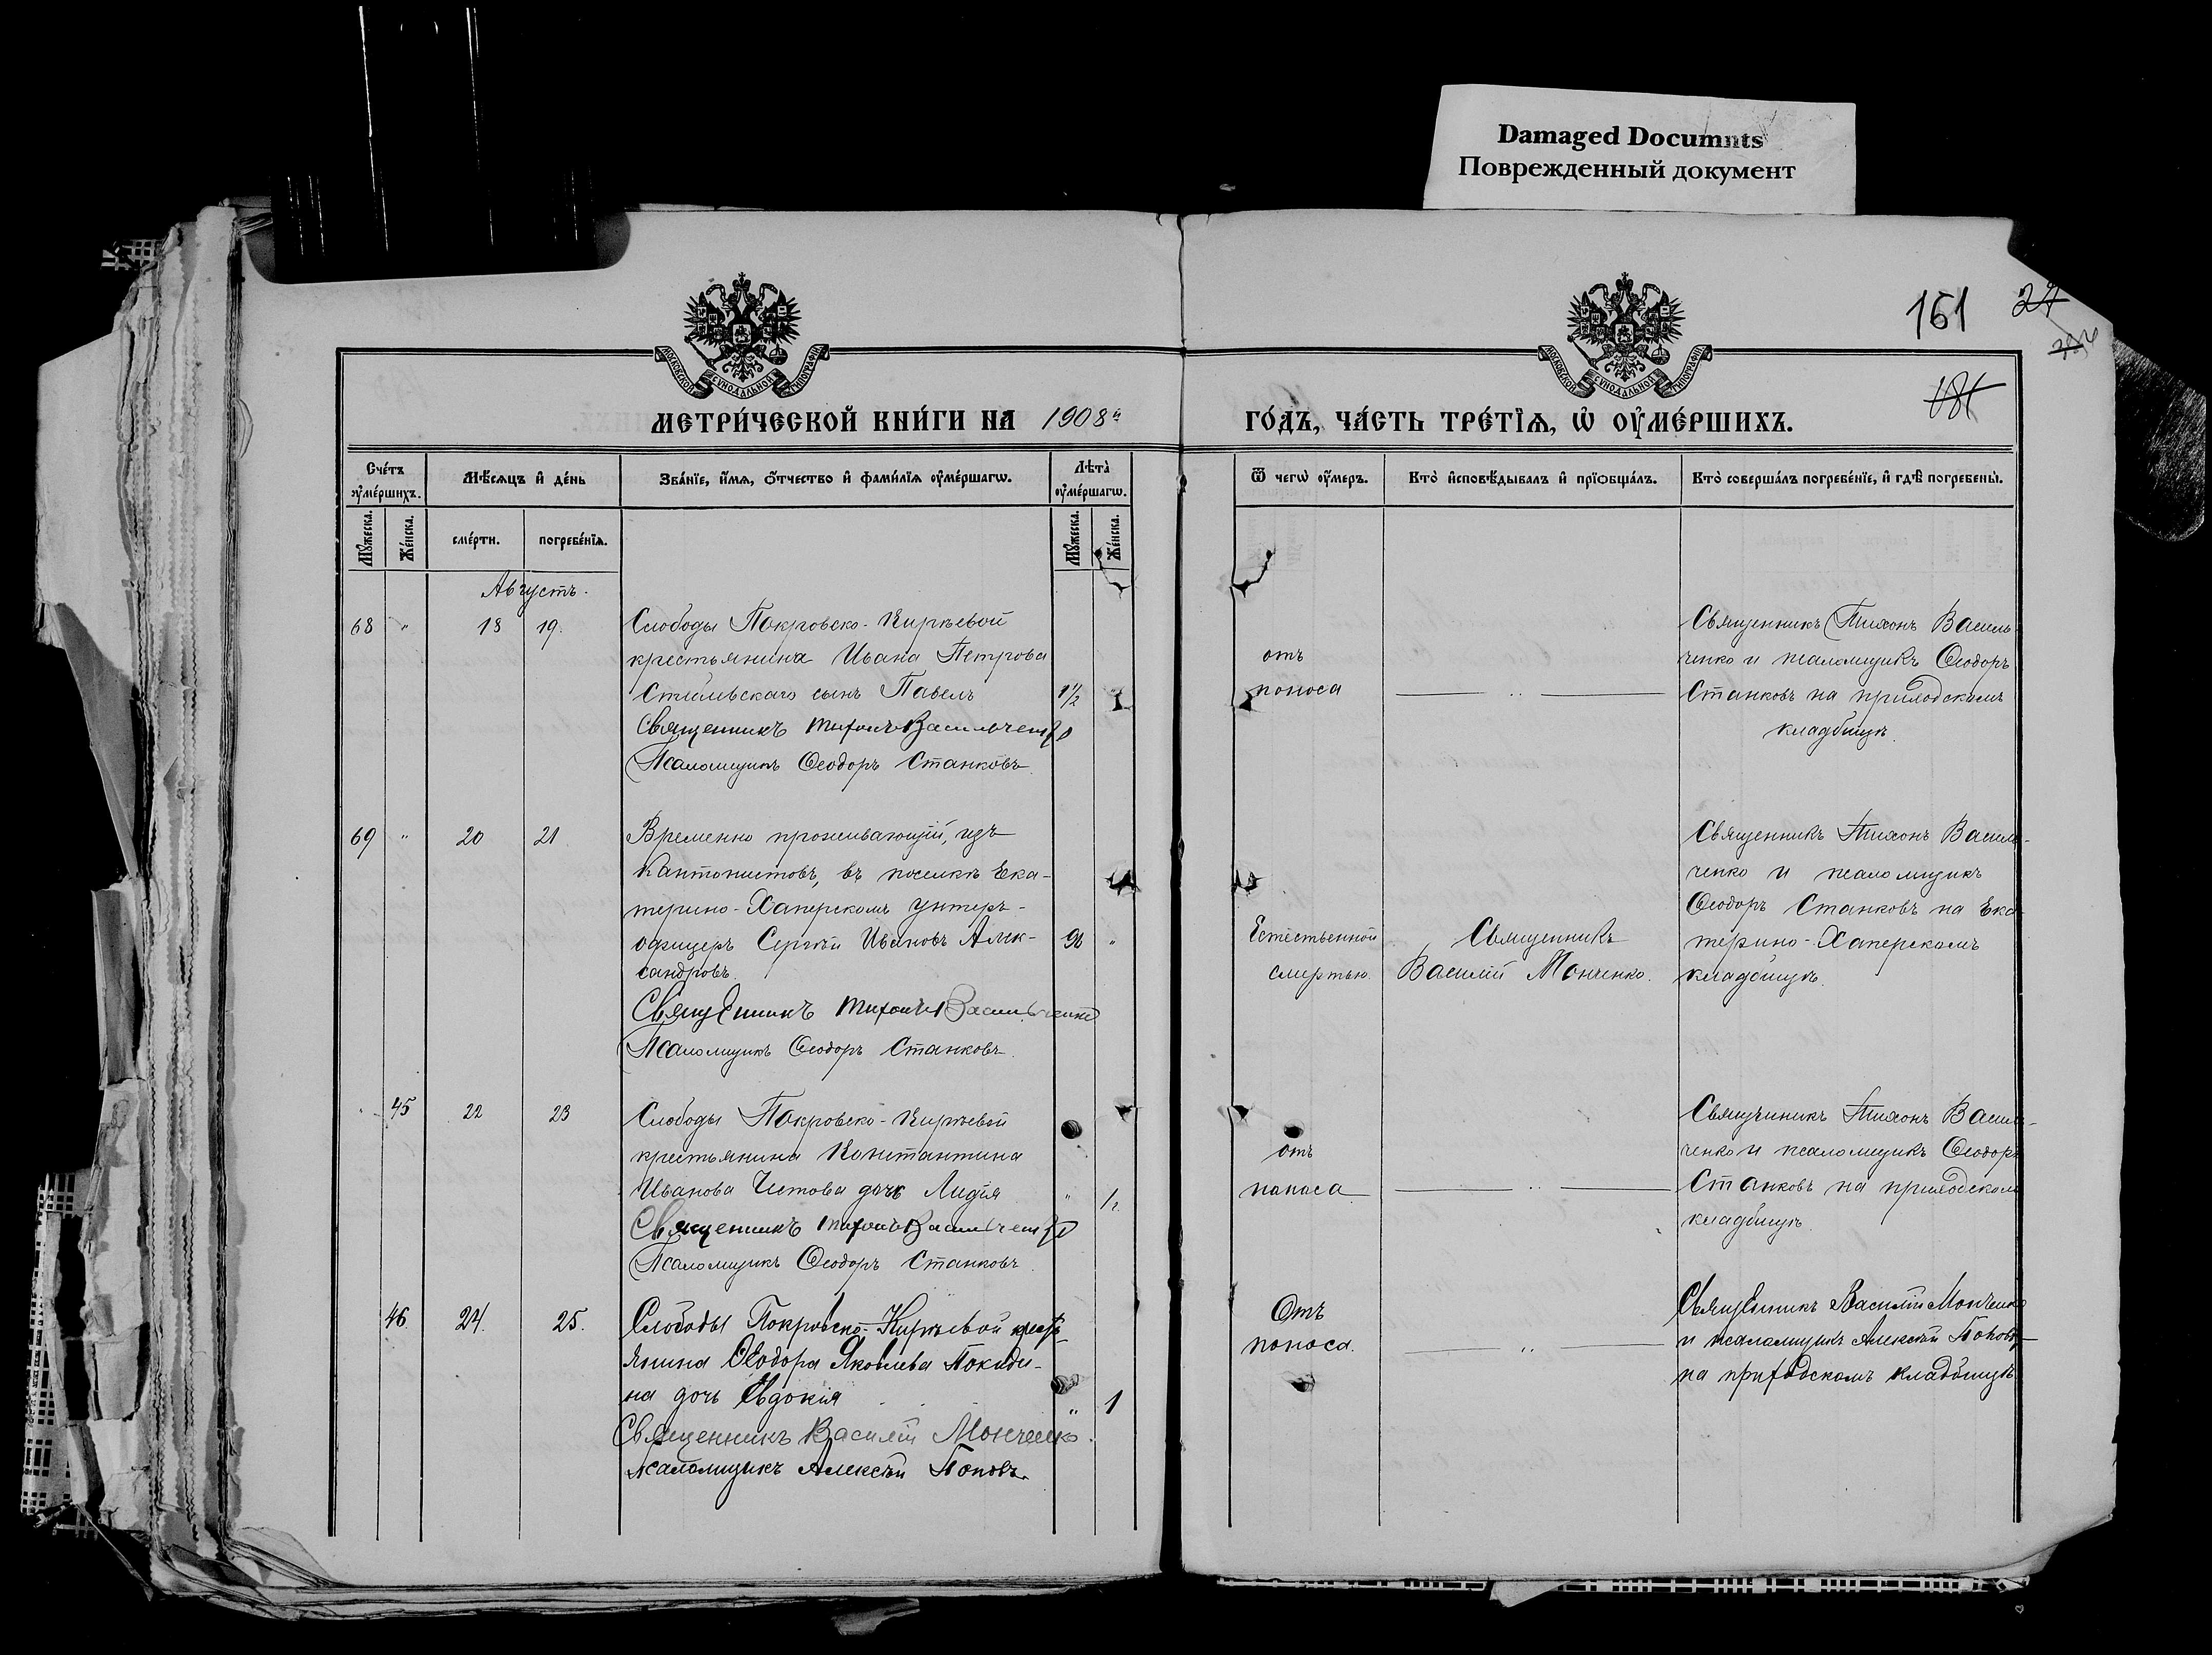 Damaged Documnts
Поврежденный документ
161
24
181
МОСКОВСКОЙ СѴНОДАЛЬНОЙ ТИПОГРАФІИ
МОСКОВСКОЙ СѴНОДАЛЬНОЙ ТИПОГРАФІИ
МЕТРИ́ЧЕСКОЙ КНИ́ГИ НА 1908й
ГО́ДЪ, ЧА́СТЬ ТРЕ́ТІѦ, Ѡ҆ ОУ҆МЕ́РШИХЪ.
Сче́тъ оу҆ме́ршихъ.
Мѣ́сѧцъ и҆ де́нь
Зва́нїе, и҆́мѧ, ѻ҆́тчество и҆ фами́лїѧ оу҆ме́ршагѡ.
Лѣта̀ оу҆ме́ршагѡ.
Ѿ чегѡ̀ оу҆́меръ.
Кто̀ и҆сповѣ́дывалъ и҆ прїѡбща́лъ.
Кто̀ соверша́лъ погребе́нїе, и҆ гдѣ̀ погребены̀.
Мꙋ́жеска.
Же́нска.
сме́рти.
погребе́нїѧ.
Мꙋ́жеска.
Же́нска.
Августъ.
68 " 18 19. Слободы Покровско-Кирѣевой
крестьянина Ивана Петрова
сынъ Павелъ 1½
Священникъ Тихонъ Васильченко
Псаломщикъ Ѳеодоръ Станковъ.
отъ
поноса
— " —
Священникъ Тихонъ Василь-
ченко и псаломщикъ Ѳеодоръ
Станковъ на приходскомъ
кладбищѣ.
69 " 20 21 Временно проживающій, изъ
кантонистовъ, въ поселкѣ Ека-
терино-Хаперскомъ унтеръ-
офицеръ Сергѣй Ивановъ Алек- 90 "
сандровъ.
Священникъ Тихонъ Васильченко
Псаломщикъ Ѳеодоръ Станковъ.
Естественной
смертью.
Священникъ
Василій Монченко.
Священникъ Тихонъ Василь-
ченко и псаломщикъ
Ѳеодоръ Станковъ на Ека-
терино-Хаперскомъ
кладбищѣ.
" 45 22 23 Слободы Покровско-Кирѣевой
крестьянина Константина
Иванова дочь Лидія " ½
Священникъ Тихонъ Васильченко
Псаломщикъ Ѳеодоръ Станковъ.
отъ
поноса
— " —
Священникъ Тихонъ Василь-
ченко и псаломщикъ Ѳеодоръ
Станковъ на приходском
кладбищѣ.
46 24. 25. Слободы Покровско-Кирѣевой кресть-
янина Ѳеодора Яковлева Покиди-
на дочь Евдокія " 1
Священникъ Василій Монченко.
Псаломщикъ Алексѣй Поповъ.
Отъ
поноса.
— " —
Священникъ Василій Монченко
и псаломщикъ Алексѣй Поповъ
на приходскомъ кладбищѣ